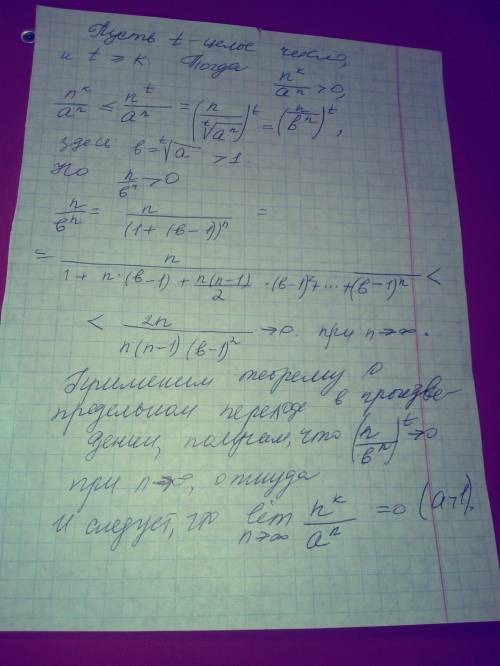 Пусть t - целое число,
и t ≥ k. Тогда n^k/a^n > 0,
n^k/a^n ≤ n^t/a^n = (n/ᵗ√(a^n))^t = (n/в^n)^t,
здесь в = ᵗ√a > 1.
Но n/в^n > 0
n/в^n = n/(1 + (в-1))^n =
= n/(1 + n·(в-1) + n(n-1)/2 ·(в-1)² + ... + (в-1)^n) <
< 2n/(n(n-1)(в-1)²) → 0. при n → ∞.
Применим теорему о
предельном переходе в произве-
дении, получаем, что (n/в^n)^t → 0
при n → ∞, откуда
и следует, что lim n→∞ n^k/a^n = 0 (a>1).